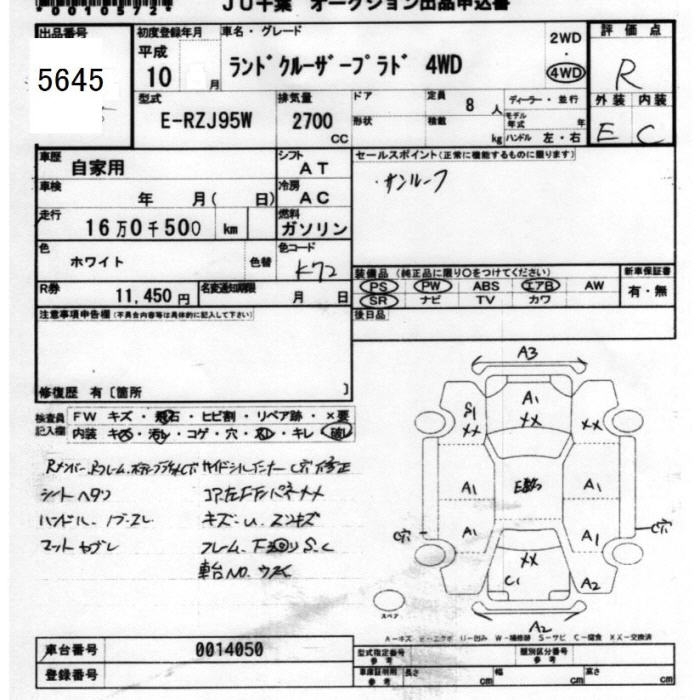 *0010572*
JU千葉 オークション出品申込書
出品番号
5645
初度登録年月
平成
10 月
車名・グレード
ランドクルーザープラド 4WD
2WD
・
4WD
評価点
R
外装 内装
E C
型式
E-RZJ95W
排気量
2700
CC
ドア
形状
定員 8 人
積載 kg
ディーラー・並行
モデル年式 年
ハンドル 左・右
車歴
自家用
シフト
AT
セールスポイント(正常に機能するものに限ります)
・サンルーフ
車検
年 月( 日)
冷房
AC
走行
16万0千500 km
燃料
ガソリン
色
ホワイト
色替
色コード
K72
R券
11,450 円
名変通知期限
月 日
装備品 (純正品に限り○をつけてください)
PS PW ABS エアB AW
SR ナビ TV カワ
新車保証書
有・無
後日品
注意事項申告欄(不具合内容等は具体的に記入して下さい)
修復歴 有〔箇所 〕
検査員記入欄
FW キズ ・ 飛石 ・ ヒビ割 ・ リペア跡 ・ ×要
内装 キズ・汚レ・コゲ・穴・スレ・キレ・破レ
シートヘタリ
ハンドル、ノブスレ
マットヤブレ
コア左右Fパネメメ
キズ・U、スリキズ
フレーム、下廻りS、C
車台NO.ウスイ
A3
A1
XX
S1
XX
XX
A1
A1
A1
A1
C穴
C穴
XX
C1
A2
A2
スペア
A-キズ E-エクボ U-凹み W-補修跡 S-サビ C-腐食 XX-交換済
車台番号
0014050
登録番号
型式指定番号
参考
類別区分番号
参考
車庫証明用
参考
長さ cm
幅 cm
高さ cm